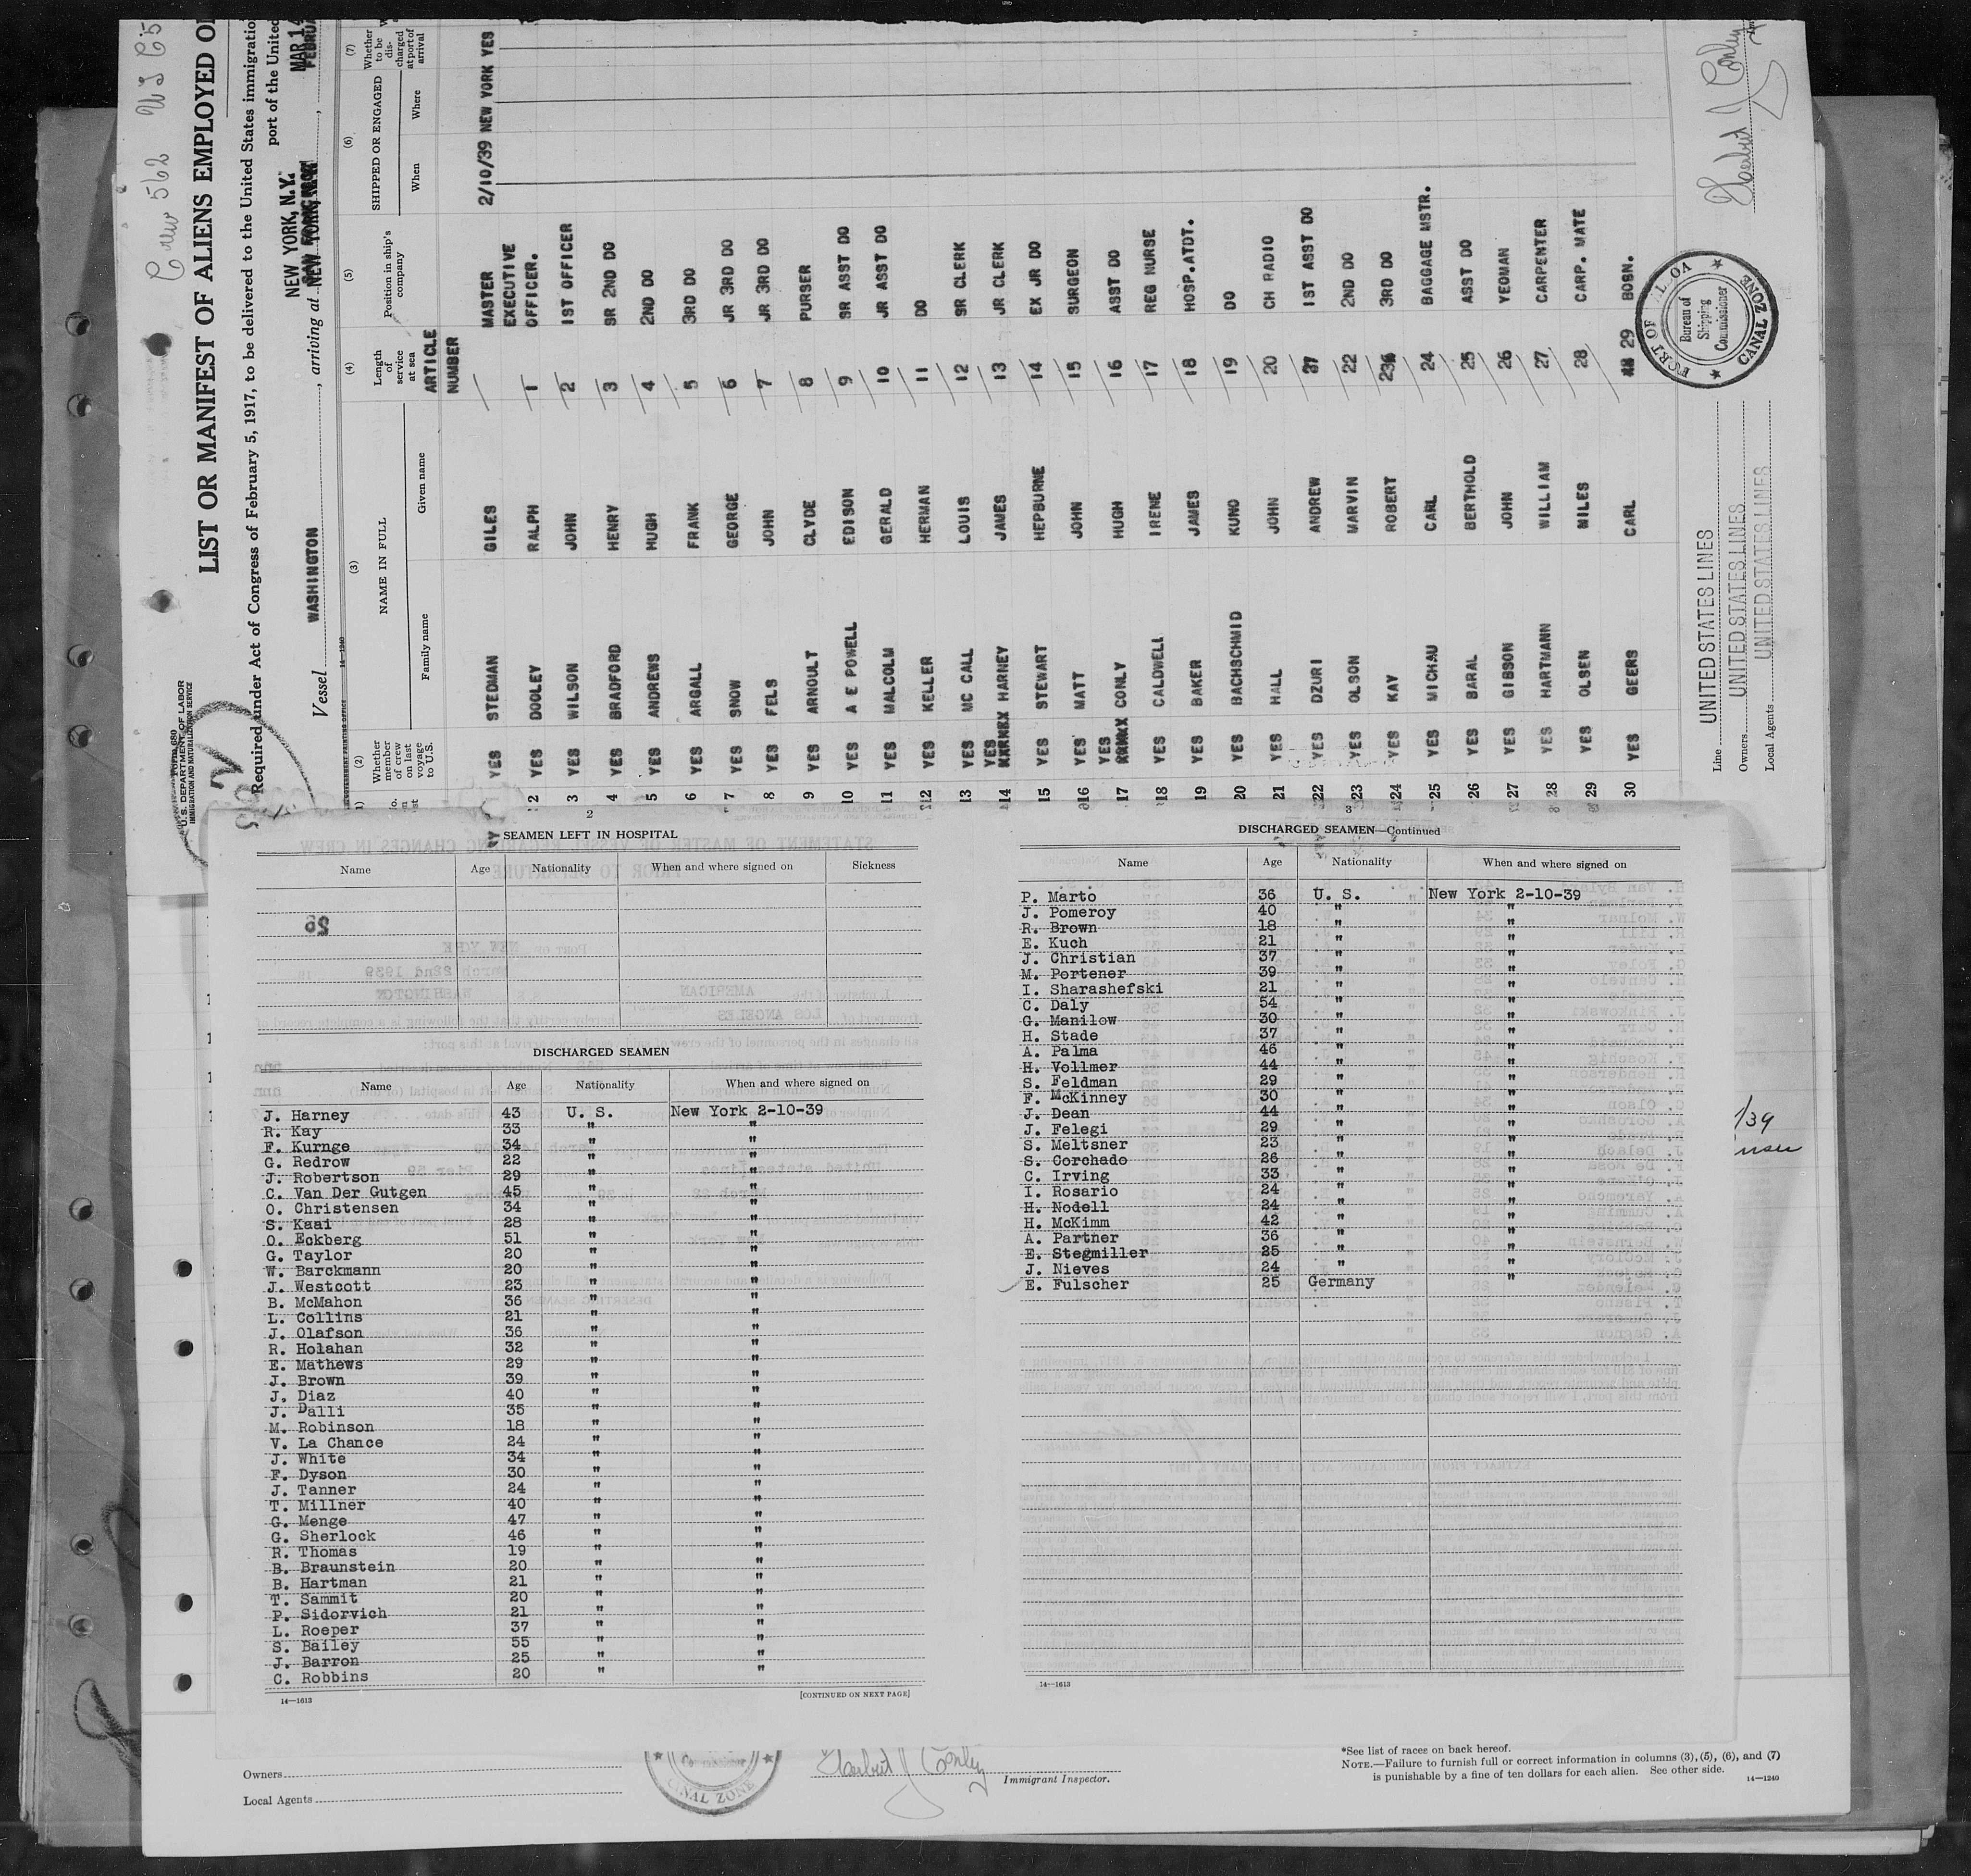 Crew 562
Form 680
U. S. DEPARTMENT OF LABOR
IMMIGRATION AND NATURALIZATION SERVICE
LIST OR MANIFEST OF ALIENS EMPLOYED O
Required under Act of Congress of February 5, 1917, to be delivered to the United States immigratio
port of the United
Vessel WASHINGTON, arriving at NEW YORK, N.Y. MAR 14
14—1240
(2) (3) (4) (5) (6) (7)
Whether member of crew on last voyage to U.S. NAME IN FULL Length of service at sea Position in ship's company SHIPPED OR ENGAGED Whether to be dis-charged at port of arrival
Family name Given name When Where
ARTICLE NUMBER
YES STEDMAN GILES MASTER 2/10/39 NEW YORK YES
2 YES DOOLEY RALPH 1 EXECUTIVE OFFICER.
3 YES WILSON JOHN 2 1ST OFFICER
4 YES BRADFORD HENRY 3 SR 2ND DO
5 YES ANDREWS HUGH 4 2ND DO
6 YES ARGALL FRANK 5 3RD DO
7 YES SNOW GEORGE 6 JR 3RD DO
8 YES FELS JOHN 7 JR 3RD DO
9 YES ARNOULT CLYDE 8 PURSER
10 YES A E POWELL EDISON 9 SR ASST DO
11 YES MALCOLM GERALD 10 JR ASST DO
12 YES KELLER HERMAN 11 DO
13 YES MC CALL LOUIS 12 SR CLERK
14 YES HARNEY JAMES 13 JR CLERK
15 YES STEWART HEPBURNE 14 EX JR DO
16 YES MATT JOHN 15 SURGEON
17 YES CONLY HUGH 16 ASST DO
18 YES CALDWELL IRENE 17 REG NURSE
19 YES BAKER JAMES 18 HOSP.ATDT.
20 YES BACHSCHMID KUNO 19 DO
21 YES HALL JOHN 20 CH RADIO
22 YES DZURI ANDREW 1ST ASST DO
23 YES OLSON MARVIN 22 2ND DO
24 YES KAY ROBERT 23 3RD DO
25 YES MICHAU CARL 24 BAGGAGE MSTR.
26 YES BARAL BERTHOLD 25 ASST DO
27 YES GIBSON JOHN 26 YEOMAN
28 YES HARTMANN WILLIAM 27 CARPENTER
29 YES OLSEN MILES 28 CARP. MATE
30 YES GEERS CARL 29 BOSN.
Line UNITED STATES LINES
Owners UNITED STATES LINES
Local Agents UNITED STATES LINES
Bureau of Shipping Commissioner
CANAL ZONE
Herbert J Conley
2
SEAMEN LEFT IN HOSPITAL
Name Age Nationality When and where signed on Sickness
DISCHARGED SEAMEN
Name Age Nationality When and where signed on
J. Harney 43 U. S. New York 2-10-39
R. Kay 33 " "
F. Kurnge 34 " "
G. Redrow 22 " "
J. Robertson 29 " "
C. Van Der Gutgen 45 " "
O. Christensen 34 " "
S. Kaai 28 " "
O. Eckberg 51 " "
G. Taylor 20 " "
W. Barckmann 20 " "
J. Westcott 23 " "
B. McMahon 36 " "
L. Collins 21 " "
J. Olafson 36 " "
R. Holahan 32 " "
E. Mathews 29 " "
J. Brown 39 " "
J. Diaz 40 " "
J. Dalli 35 " "
M. Robinson 18 " "
V. La Chance 24 " "
J. White 34 " "
F. Dyson 30 " "
J. Tanner 24 " "
T. Millner 40 " "
G. Menge 47 " "
G. Sherlock 46 " "
R. Thomas 19 " "
B. Braunstein 20 " "
B. Hartman 21 " "
T. Sammit 20 " "
P. Sidorvich 21 " "
L. Roeper 37 " "
S. Bailey 55 " "
J. Barron 25 " "
C. Robbins 20 " "
14—1613 [CONTINUED ON NEXT PAGE]
3
DISCHARGED SEAMEN—Continued
Name Age Nationality When and where signed on
P. Marto 36 U. S. New York 2-10-39
J. Pomeroy 40 " "
R. Brown 18 " "
E. Kuch 21 " "
J. Christian 37 " "
M. Portener 39 " "
I. Sharashefski 21 " "
C. Daly 54 " "
G. Manilow 30 " "
H. Stade 37 " "
A. Palma 46 " "
H. Vollmer 44 " "
S. Feldman 29 " "
F. McKinney 30 " "
J. Dean 44 " "
J. Felegi 29 " "
S. Meltsner 23 " "
S. Corchado 26 " "
C. Irving 33 " "
I. Rosario 24 " "
H. Nodell 24 " "
H. McKimm 42 " "
A. Partner 36 " "
E. Stegmiller 25 " "
J. Nieves 24 " "
E. Fulscher 25 Germany "
14—1613
1/39
Owners
Local Agents
CANAL ZONE
Herbert J Conley
Immigrant Inspector.
*See list of races on back hereof.
NOTE.—Failure to furnish full or correct information in columns (3), (5), (6), and (7)
is punishable by a fine of ten dollars for each alien. See other side.
14—1240